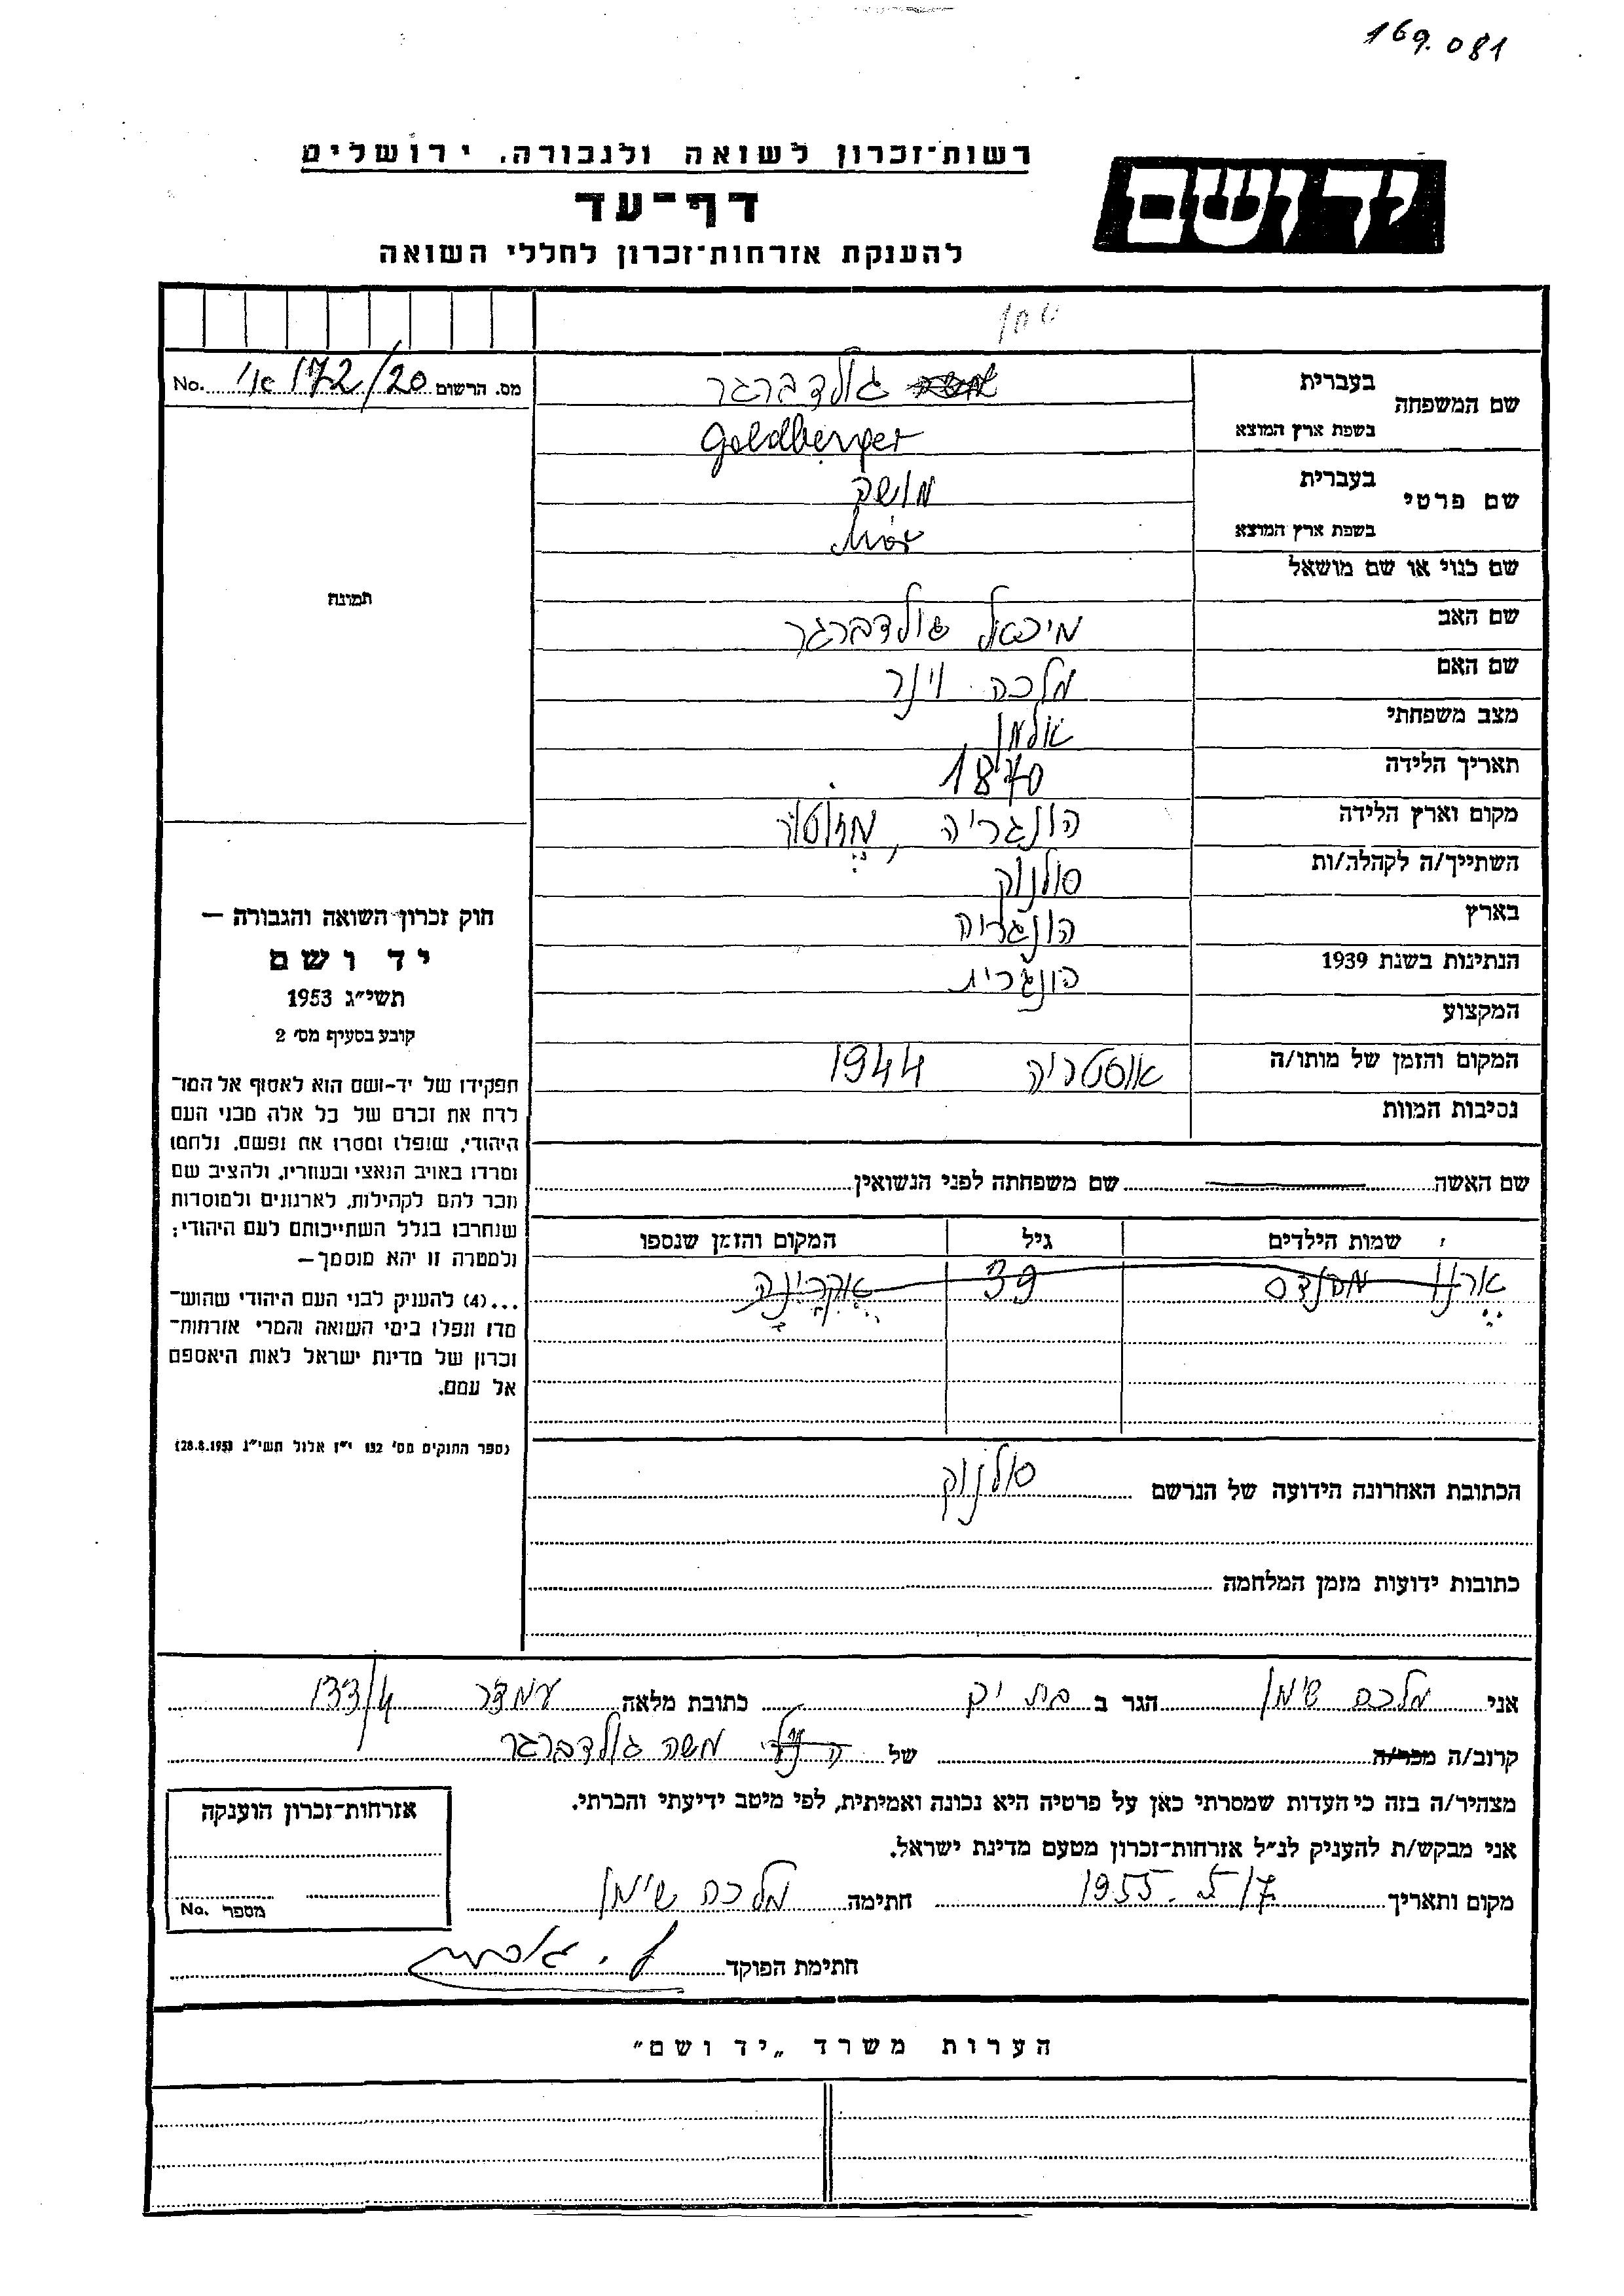 169.081
רשות־זכרון לשואה ולגבורה, ירושלים
יד ושם
דף־עד
להענקת אזרחות־זכרון לחללי השואה
שם המשפחה בעברית גולדברגר
בשפת ארץ המוצא Goldberger
מס. הרשום 172/20 No.
שם פרטי בעברית מושה
בשפת ארץ המוצא Mór
שם כנוי או שם מושאל
תמונה
שם האב מיכאל גולדברגר
שם האם מלכה וינר
מצב משפחתי אלמן
תאריך הלידה 1870
מקום וארץ הלידה הונגריה,
השתייך/ה לקהלה/ות סולנוק
בארץ הונגריה
הנתינות בשנת 1939 הונגרית
המקצוע
המקום והזמן של מותו/ה אוסטריה 1944
נסיבות המוות
חוק זכרון השואה והגבורה —
יד ושם
תשי״ג 1953
קובע בסעיף מס׳ 2
תפקידו של יד-ושם הוא לאסוף אל המו־
לדת את זכרם של כל אלה מבני העם
היהודי, שנפלו ומסרו את נפשם, נלחמו
ומרדו באויב הנאצי ובעוזריו, ולהציב שם
וזכר להם לקהילות, לארגונים ולמוסדות
שנחרבו בגלל השתייכותם לעם היהודי;
ולמטרה זו יהא מוסמך—
...(4) להעניק לבני העם היהודי שהוש־
מדו ונפלו בימי השואה והמרי אזרחות־
זכרון של מדינת ישראל לאות היאספם
אל עמם.
(ספר החוקים מס׳ 132 י״ז אלול תשי״ג 28.8.1953)
שם האשה שם משפחתה לפני הנשואין
שמות הילדים גיל המקום והזמן שנספו
39
הכתובת האחרונה הידועה של הנרשם סולנוק
כתובות ידועות מזמן המלחמה
אני מלכה שימן הגר ב בת ים כתובת מלאה עמידר 133/4
קרוב/ה מכר/ה של משה גולדברגר
מצהיר/ה בזה כי העדות שמסרתי כאן על פרטיה היא נכונה ואמיתית, לפי מיטב ידיעתי והכרתי.
אני מבקש/ת להעניק לנ״ל אזרחות־זכרון מטעם מדינת ישראל.
מקום ותאריך 17.5.1955 חתימה מלכה שימן
חתימת הפוקד
אזרחות־זכרון הוענקה
מספר No.
הערות משרד „יד ושם״